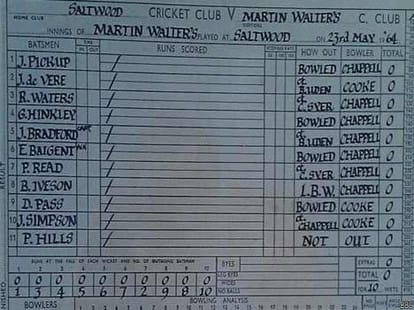 HOME CLUB SALTWOOD CRICKET CLUB V MARTIN WALTER'S C. CLUB
VISITORS
INNINGS OF MARTIN WALTER'S PLAYED AT SALTWOOD ON 23RD MAY 1964
BATSMEN TIME IN OUT RUNS SCORED HOW OUT BOWLER TOTAL
1 J. PICKUP BOWLED CHAPPELL 0
2 J. de VERE ct. B.UDEN COOKE 0
3 R. WATERS ct. C.SYER CHAPPELL 0
4 G. HINKLEY BOWLED CHAPPELL 0
5 J. BRADFORD CAPT. ct. B.UDEN CHAPPELL 0
6 E. BAIGENT WK BOWLED CHAPPELL 0
7 P. READ ct. C.SYER CHAPPELL 0
8 B. IVESON L.B.W. CHAPPELL 0
9 D. PASS BOWLED COOKE 0
10 J. SIMPSON ct. CHAPPELL COOKE 0
11 P. HILLS NOT OUT 0
RUNS AT THE FALL OF EACH WICKET AND NO. OF OUTGOING BATSMAN
1 2 3 4 5 6 7 8 9 10
0 0 0 0 0 0 0 0 0 0
1 3 4 6 5 7 2 9 8 10
BYES
LEG BYES
WIDES
NO BALLS
EXTRAS 0
TOTAL 0
FOR 10 WKTS
BOWLERS BOWLING ANALYSIS